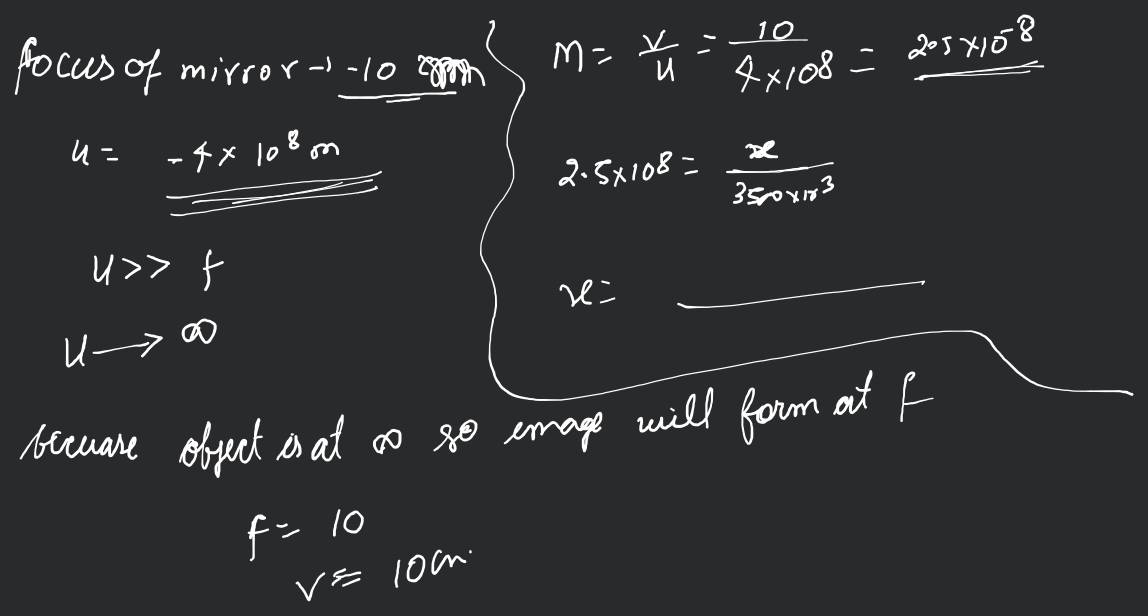 focus of mirror → -10
u = -4 × 10⁸ m
u >> f
u → ∞
M = v/u = 10/4×108 = 2.5×10⁻⁸
2.5×108 = x/3500×10³
x =
becuase object is at ∞ so image will form at f
f = 10
v = 10cm.